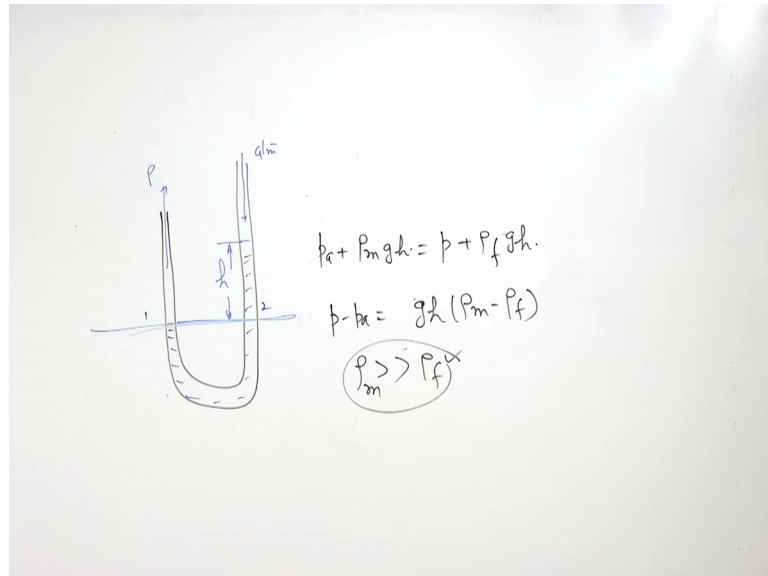 P
atm
h
1
2
pₐ + ρₘgh = p + ρ_f gh.
p - pₐ = gh(ρₘ - ρ_f)
ρₘ >> ρ_f